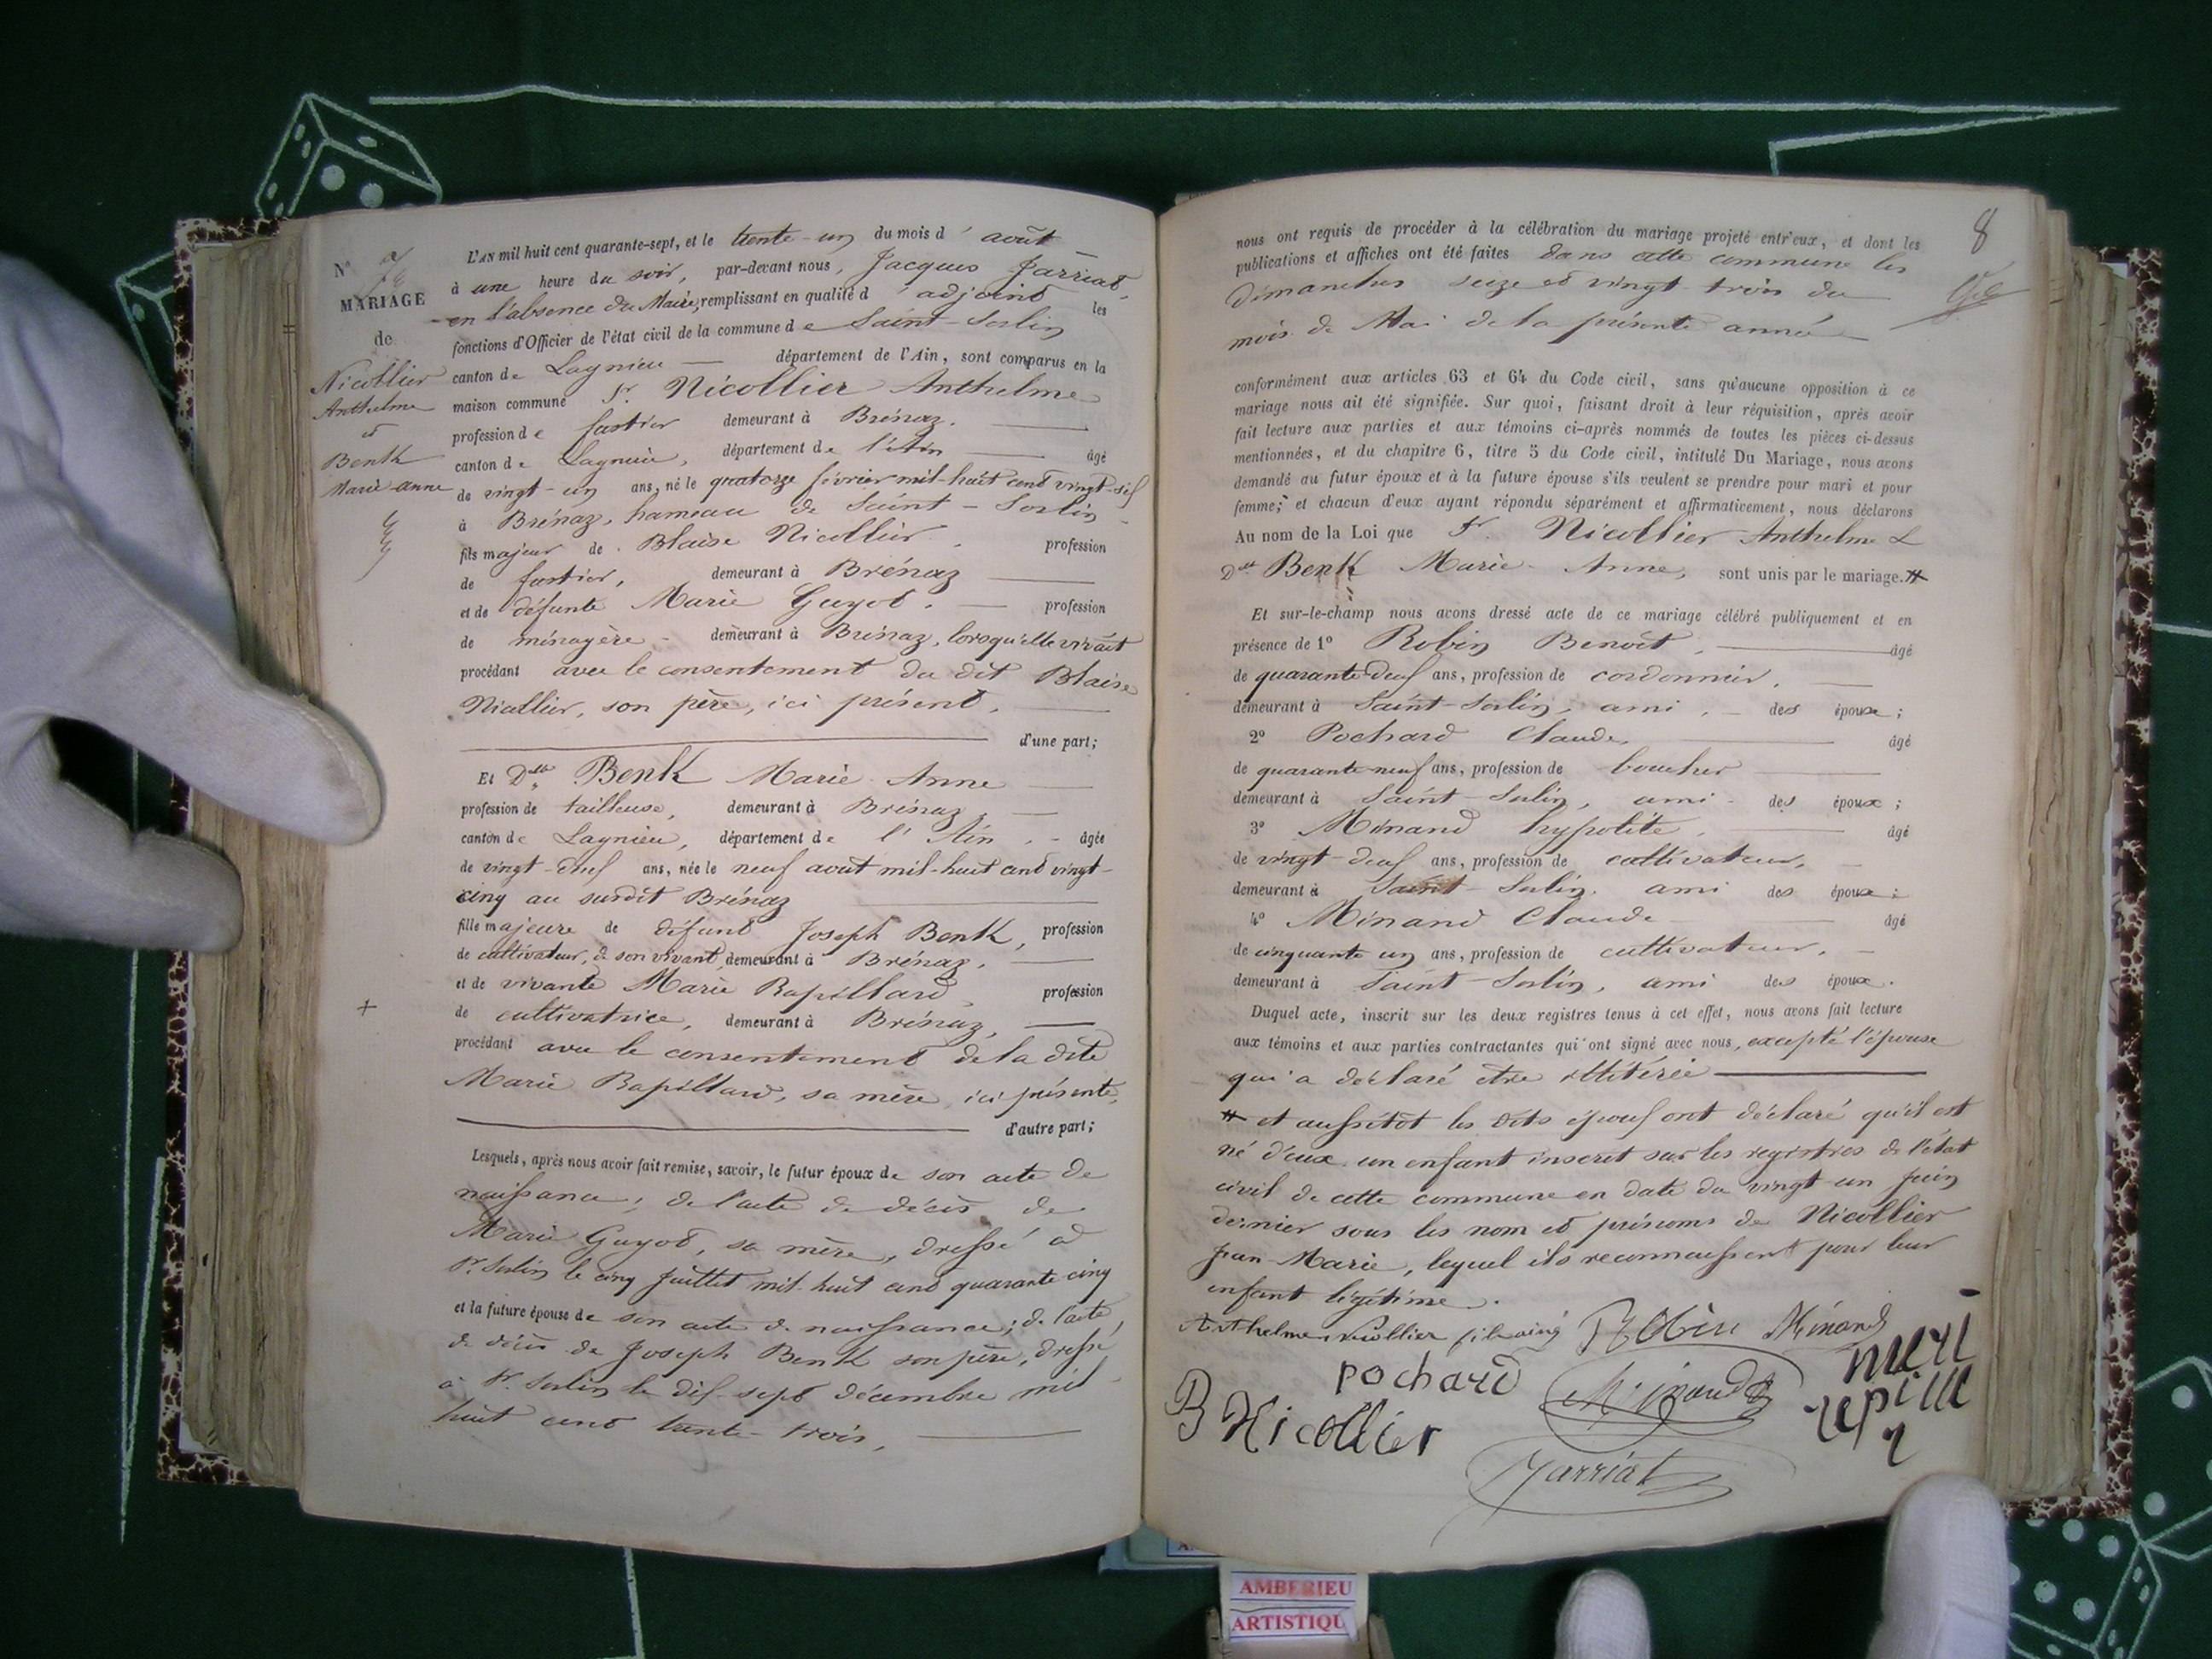 N° 7
MARIAGE
de
Nicollier
Anthelme
et
Benk
Marie-anne
L'AN mil huit cent quarante-sept, et le trente-un du mois d'août
à une heure du soir, par-devant nous, Jacques Jarriat,
en l'absence du Maire, remplissant en qualité d'adjoint les
fonctions d'Officier de l'état civil de la commune de Saint-Sorlin
canton de Lagnieu département de l'Ain, sont comparus en la
maison commune Sr. Nicollier Anthelme
profession de demeurant à Brénaz.
canton de Lagnieu, département de l'Ain âgé
de vingt-un ans, né le quatorze février mil-huit cent vingt-six
à Brénaz, hameau de Saint-Sorlin
fils majeur de Blaise Nicollier. profession
de demeurant à Brénaz
et de défunte Marie Guyot. profession
de ménagère - demeurant à Brénaz, lorsqu'elle vivait
procédant avec le consentement du dit Blaise
Nicollier, son père, ici présent.
d'une part;
Et Dlle Benk Marie Anne
profession de tailleuse, demeurant à Brénaz,
canton de Lagnieu, département de l'Ain. - âgée
de vingt-deux ans, née le neuf août mil-huit cent vingt-
cinq au susdit Brénaz
fille majeure de défunt Joseph Benk, profession
de cultivateur, de son vivant, demeurant à Brénaz.
et de vivante Marie Rapillard, profession
de cultivatrice, demeurant à Brénaz,
procédant avec le consentement de la dite
Marie Rapillard, sa mère, ici présente,
d'autre part;
Lesquels, après nous avoir fait remise, savoir, le futur époux de son acte de
naissance; de l'acte de décès de
Marie Guyot, sa mère, dressé à
St. Sorlin le cinq Juillet mil-huit cent quarante cinq
et la future épouse de son acte de naissance; de l'acte,
de décès de Joseph Benk son père, dressé
à St. Sorlin le dix-sept décembre mil
huit cent trente-trois,
+
8
nous ont requis de procéder à la célébration du mariage projeté entr'eux, et dont les
publications et affiches ont été faites dans cette commune les
dimanches seize et vingt-trois du
mois de Mai de la présente année
conformément aux articles 63 et 64 du Code civil, sans qu'aucune opposition à ce
mariage nous ait été signifiée. Sur quoi, faisant droit à leur réquisition, après avoir
fait lecture aux parties et aux témoins ci-après nommés de toutes les pièces ci-dessus
mentionnées, et du chapitre 6, titre 5 du Code civil, intitulé Du Mariage, nous avons
demandé au futur époux et à la future épouse s'ils veulent se prendre pour mari et pour
femme; et chacun d'eux ayant répondu séparément et affirmativement, nous déclarons
Au nom de la Loi que Sr. Nicollier Anthelme &
Dlle Benk Marie Anne, sont unis par le mariage. #
Et sur-le-champ nous avons dressé acte de ce mariage célébré publiquement et en
présence de 1° Robin Benoît, âgé
de quarante-deux ans, profession de cordonnier.
demeurant à Saint-Sorlin, ami, - des époux;
2° Pochard Claude, âgé
de quarante-neuf ans, profession de boucher
demeurant à Saint-Sorlin, ami - des époux;
3° Minand hyppolite, âgé
de vingt-deux ans, profession de cultivateur,
demeurant à Saint-Sorlin. ami des époux;
4° Minand Claude âgé
de cinquante un ans, profession de cultivateur,
demeurant à Saint-Sorlin, ami des époux.
Duquel acte, inscrit sur les deux registres tenus à cet effet, nous avons fait lecture
aux témoins et aux parties contractantes qui ont signé avec nous, excepté l'épouse
qui a déclaré être illitérée
# et aussitôt les dits époux ont déclaré qu'il est
né d'eux un enfant inscrit sur les registres de l'état
civil de cette commune en date du vingt-un juin
dernier sous les nom et prénoms de Nicollier
Jean-Marie, lequel ils reconnaissent pour leur
enfant légitime.
Anthelme Nicollier fils ainé Robin Minand
pochard Minand
B Nicollier
Jarriat
AMBERIEU
ARTISTIQU